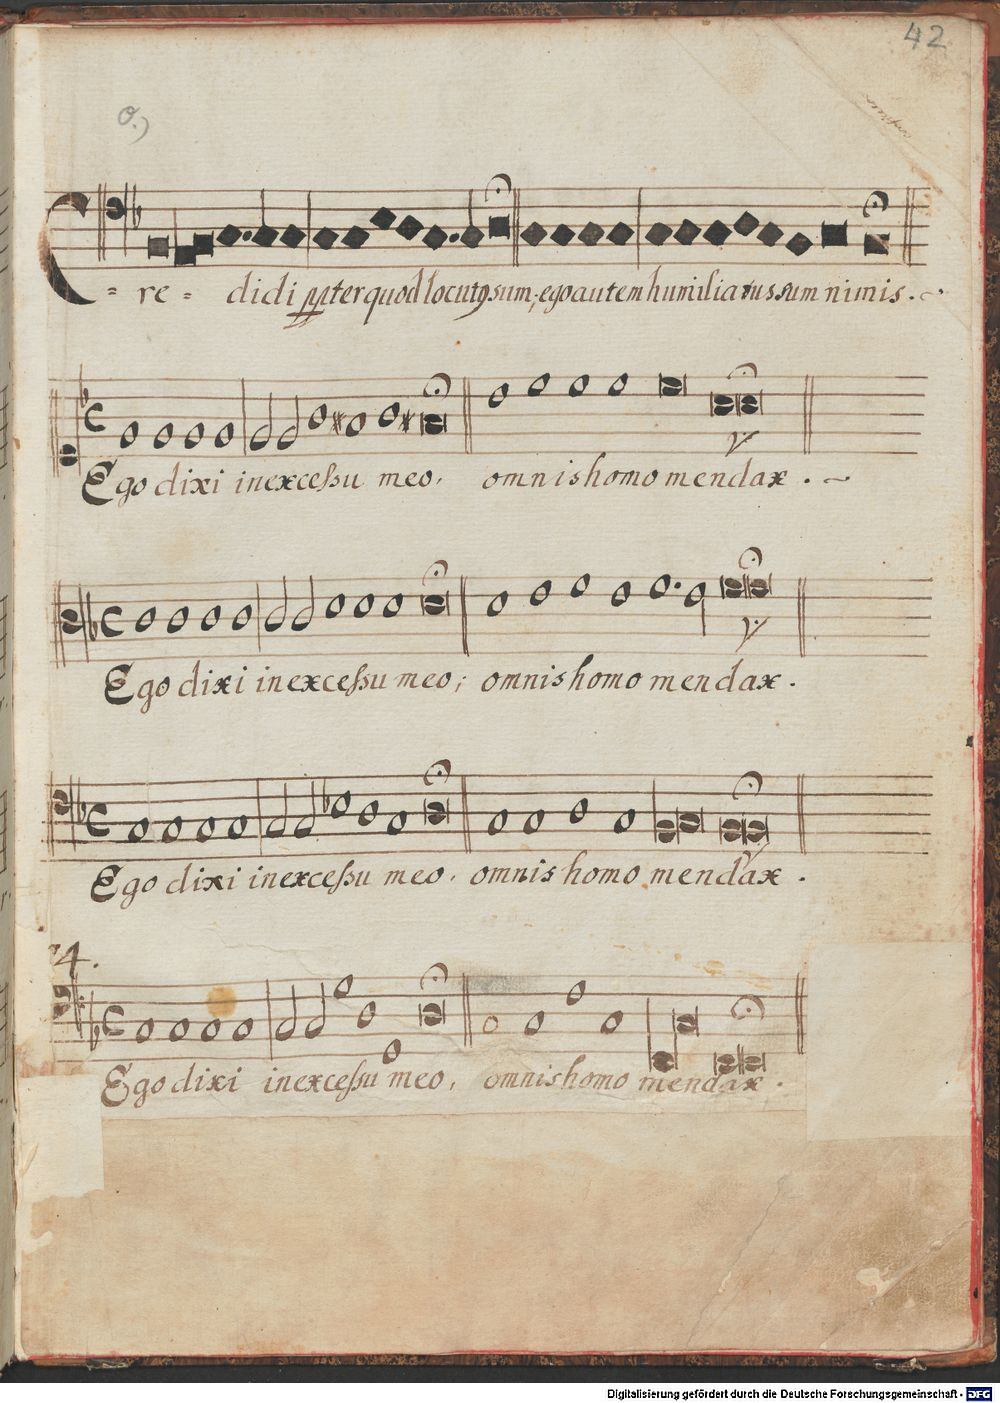 42
tempus
o.)
Cre=didi ꝓpter quod locutꝯ sum; ego autem humiliatus sum nimis.
Ego dixi in excessu meo, omnis homo mendax.
℣.
Ego dixi in excessu meo; omnis homo mendax.
℣.
Ego dixi in excessu meo, omnis homo mendax.
4.
Ego dixi in excessu meo, omnis homo mendax.
Digitalisierung gefördert durch die Deutsche Forschungsgemeinschaft - DFG